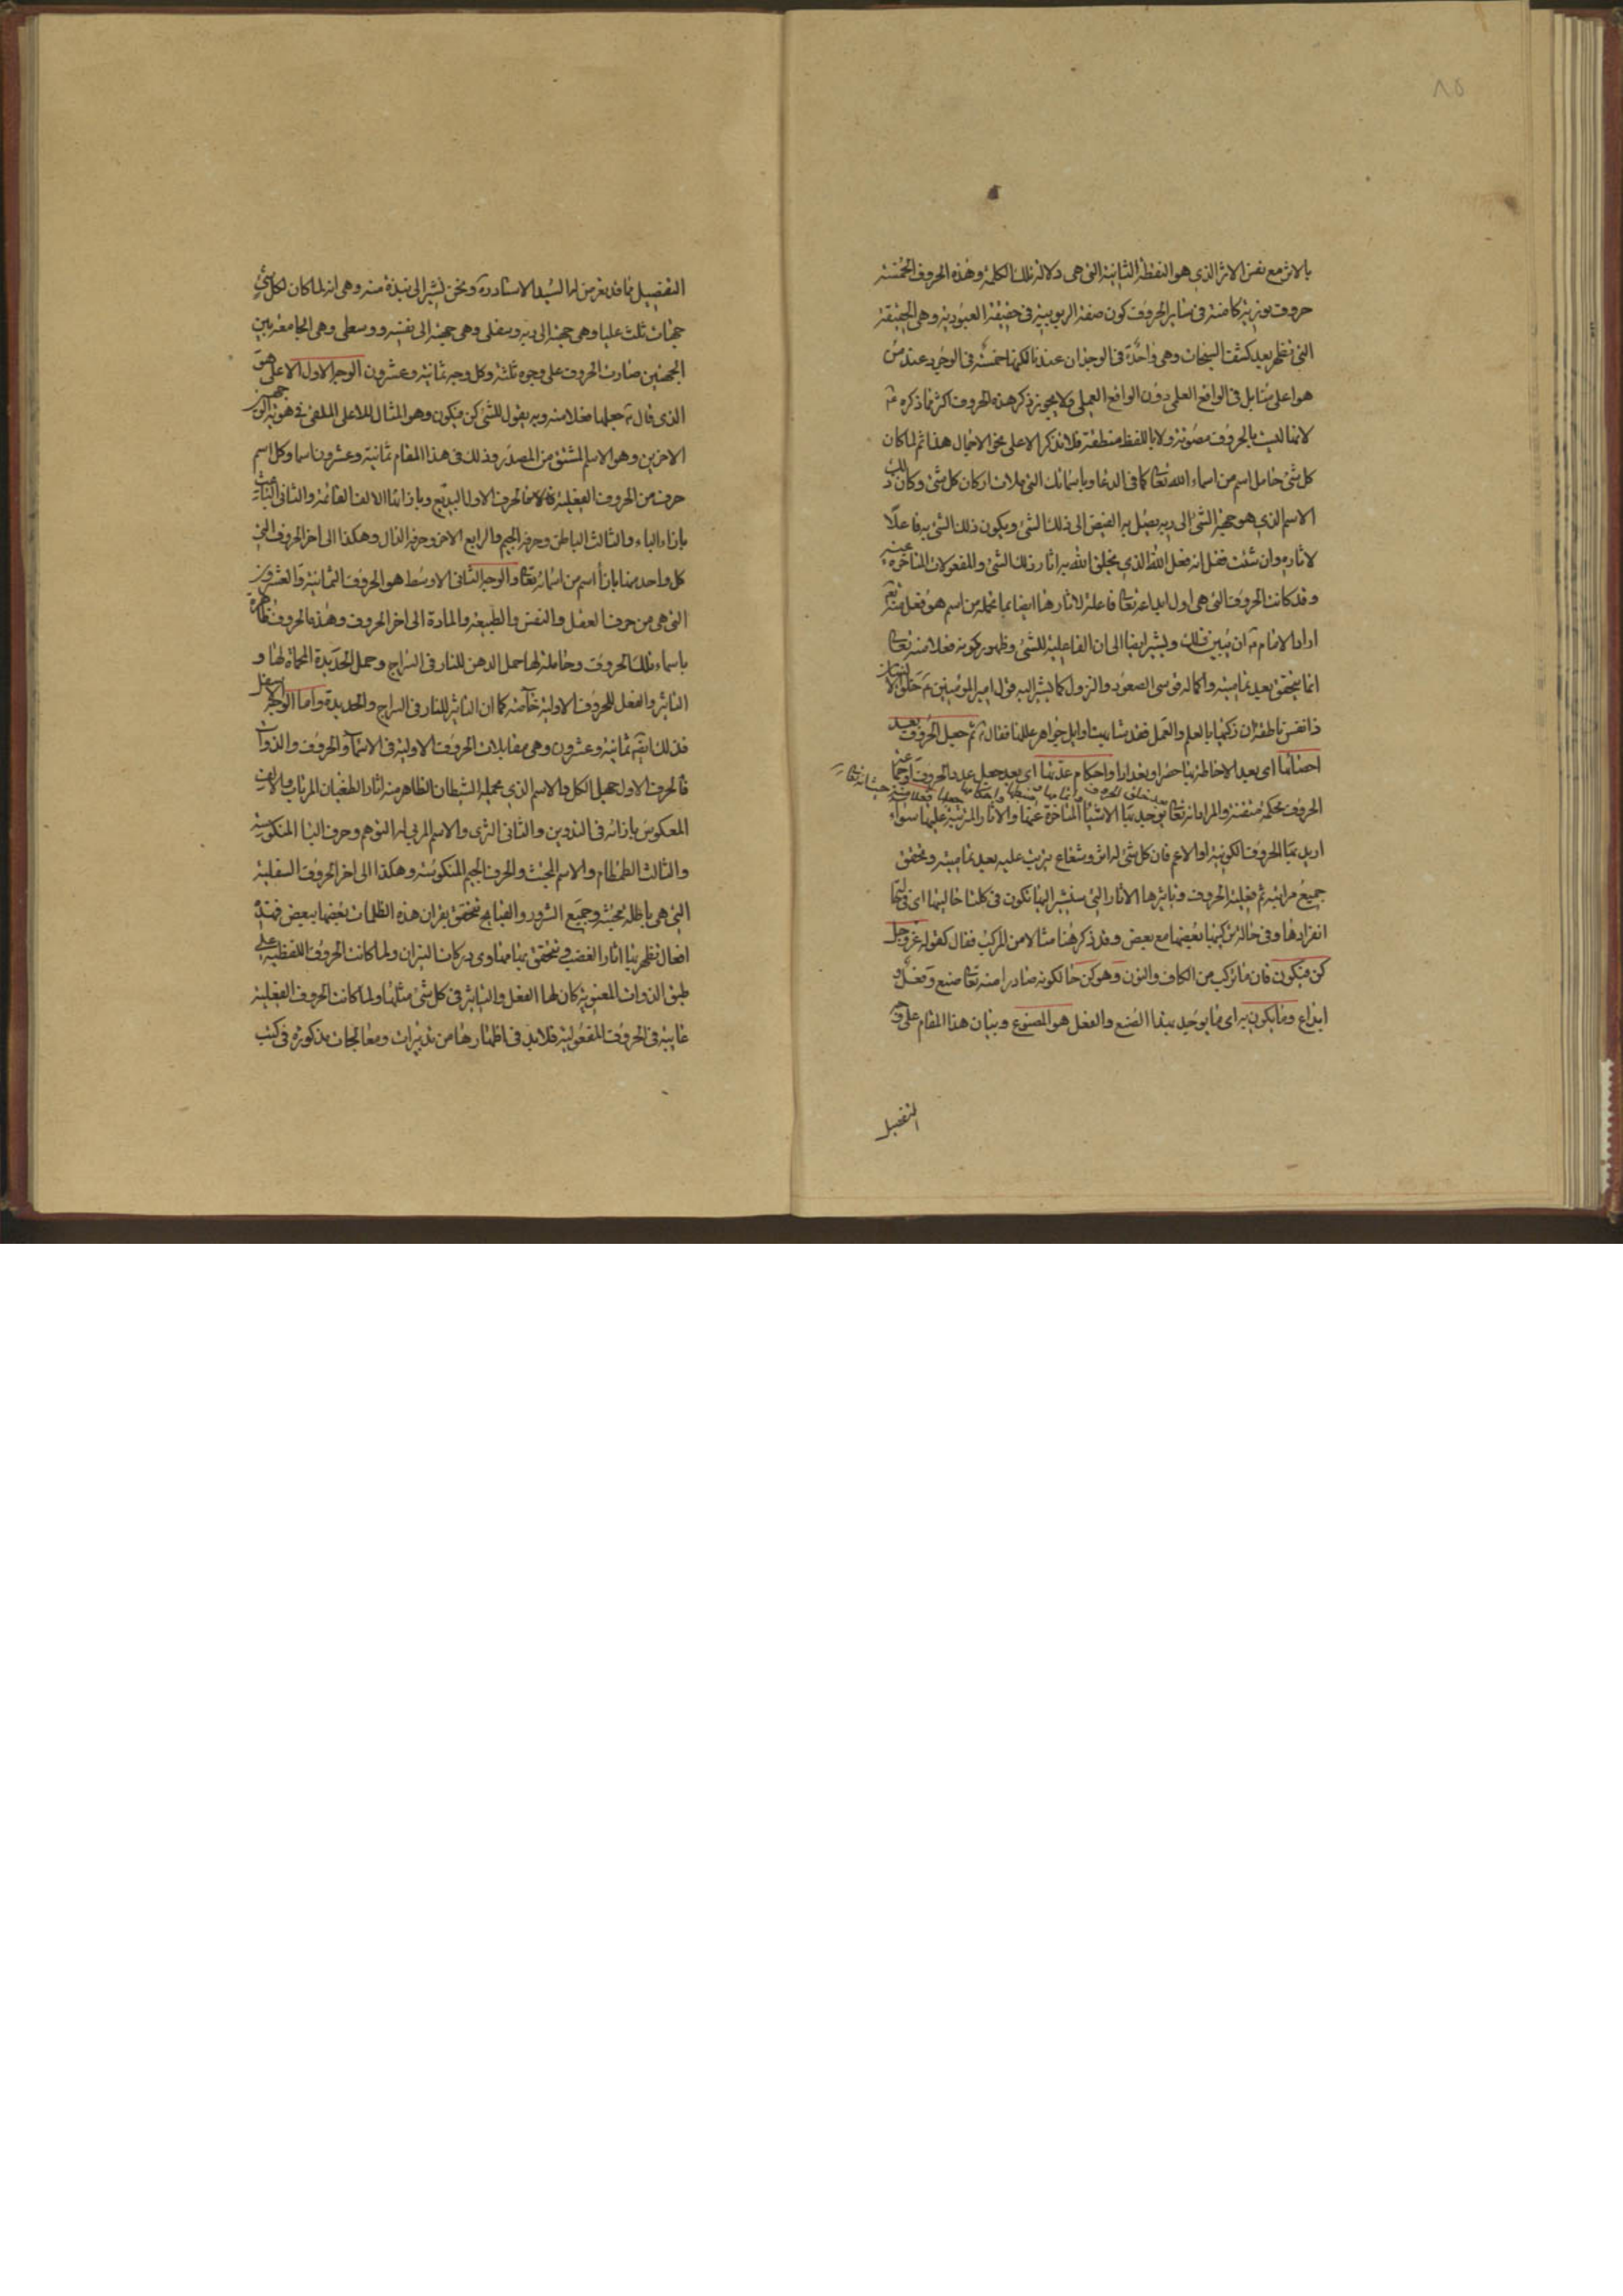 ٨٥
بالاثر مع نفس الاثر الذي هو النقطة الثانية التي هى دلالة تلك الكلمة وهذه الحروف الخمسة
حروف نورية كامنة فى ساير الحروف كون صفة الربوبية فى حقيقة العبودية وهى الحقيقة
التى تظهر بعد كشف السبحات وهى واحدة فى الوجدان عندنا لكنها خمسة فى الوجود عند من
هو اعلى مقابل فى الواقع العلمى دون الواقع العملى ولا يجوز ذكر هذه الحروف اكثر مما ذكره ع
لانها ليست بالحروف مصوتة ولا باللفظ منطقة فلا تذكر الا على نحو الاجمال هذا ثم لما كان
كل شئ حامل اسم من اسماء الله تعالى كما فى الدعاء وباسمائك التى ملات اركان كل شئ وكان ذلك
الاسم الذى هو جهة الشئ الى ربه يصل به الفيض الى ذلك الشئ ويكون ذلك الشئ به فاعلا
لاثاره وان شئت فقل انه فعل الله الذي يخلق الله به اثار ذلك الشئ والمفعولات المتاخرة عنه
وقد كانت الحروف التى هى اول ابداعه تعالى فاعلة لاثارها ايضا بما تحمله من اسم هو فعل منه تعالى
اراد الامام ع ان يبين ذلك ويشير ايضا الى ان الفاعلية للشئ وظهور كونه فعلا منه تعالى
انما يتحقق بعد تماميته واكماله قوسى الصعود والنزول كما يشير اليه قول امير المؤمنين ع خلق الانسان
ذا نفس ناطقة ان زكيها بالعلم والعمل فقد شابهت اوايل جواهر عللها فقال ع ثم جعل الحروف بعد
احصائها اى بعد الاحاطة بها حصرا وتعدادا واحكام عدتها اى بعد جعل عدد الحروف
الحروف محكمة متقنة والمراد انه تعالى يوجد بها الاشياء المتاخرة عنها والاثار المترتبة عليها سواء
اريد بها الحروف الكونية او الاعم فان كل شئ له اثر وشعاع يترتب عليه بعد تماميته وتحقق
جميع مراتبه ثم فعلية الحروف وتاثيرها الاثار التى سنشير اليها تكون فى كلتا حاليتها اى فى حالة
انفرادها وفى حالة تركيبها بعضها مع بعض وقد ذكر هنا مثالا من المركب فقال كقوله عز وجل
كن فيكون فان ما تركب من الكاف والنون وهو كن حالكونه صادرا منه تعالى صنع وفعل و
ابداع وما يكون به اى ما يوجد بهذا الصنع والفعل هو المصنوع وبيان هذا المقام على وجه
التفصيل
التفصيل مما قد تعرض له السيد الاستاد ره ونحن نشير الى نبذة منه وهى انه لما كان لكل شئ
جهات ثلث عليا وهى جهته الى ربه وسفلى وهى جهته الى نفسه ووسطى وهى الجامعة بين
الجهتين صارت الحروف على وجوه ثلثة وكل وجه ثمانية وعشرون الوجه الاول الاعلى هو
الذى قال ع جعلها فعلا منه وبه يقول للشئ كن فيكون وهو المثال للاعلى الملقى فى هوية الوجهين
الاخرين وهو الاسم المشتق من المصدر وذلك فى هذا المقام ثمانية وعشرون اسما وكل اسم
حرف من الحروف الفعلية فالاسم الحرف الاول البديع وبازائه الالف القائمة والثانى الباعث
بازاء الباء والثالث الباطن وحرفه الجيم والرابع الاخر وحرفه الدال وهكذا الى اخر الحروف التى
كل واحد منها بازاء اسم من اسمائه تعالى والوجه الثانى الاوسط هو الحروف الثمانية والعشرون
التى هى من حرف العقل والنفس والطبيعة والمادة الى اخر الحروف وهذه الحروف ظاهرة
باسماء تلك الحروف وحاملة لها حمل الدهن للنار فى السراج وحمل الحديدة المحماة لها و
التاثير والفعل للحروف الاولية خاصة كما ان التاثير للنار فى السراج والحديدة واما الوجه الاسفل
فذلك ايضا ثمانية وعشرون وهى مقابلات الحروف الاولية فى الاسماء والحروف والذوات
فالحرف الاول جهل الكل والاسم الذى يحمله الشيطان الظاهر منه اثار الطغيان المرتاب والالف
المعكوس بازائه فى التدوين والثانى الثرى والاسم المربى له التوهم وحرف الباء المنكوسة
والثالث الطمطام والاسم المخبث والحرف الجيم المنكوسة وهكذا الى اخر الحروف السفلية
التى هى باطلة مجتثة وجميع الشرور والقبايح تتحقق بقران هذه الظلمات بعضها ببعض فهذه
افعال تظهر بها اثار الغضب وتتحقق بها مهاوى دركات النيران ولما كانت الحروف اللفظية على
طبق الذوات المعنوية كان لها الفعل والتاثير فى كل شئ مثلها ولما كانت الحروف الفعلية
غايبة فى الحروف المفعولية فلابد فى اظهارها من تدبيرات ومعالجات مذكورة فى كتب